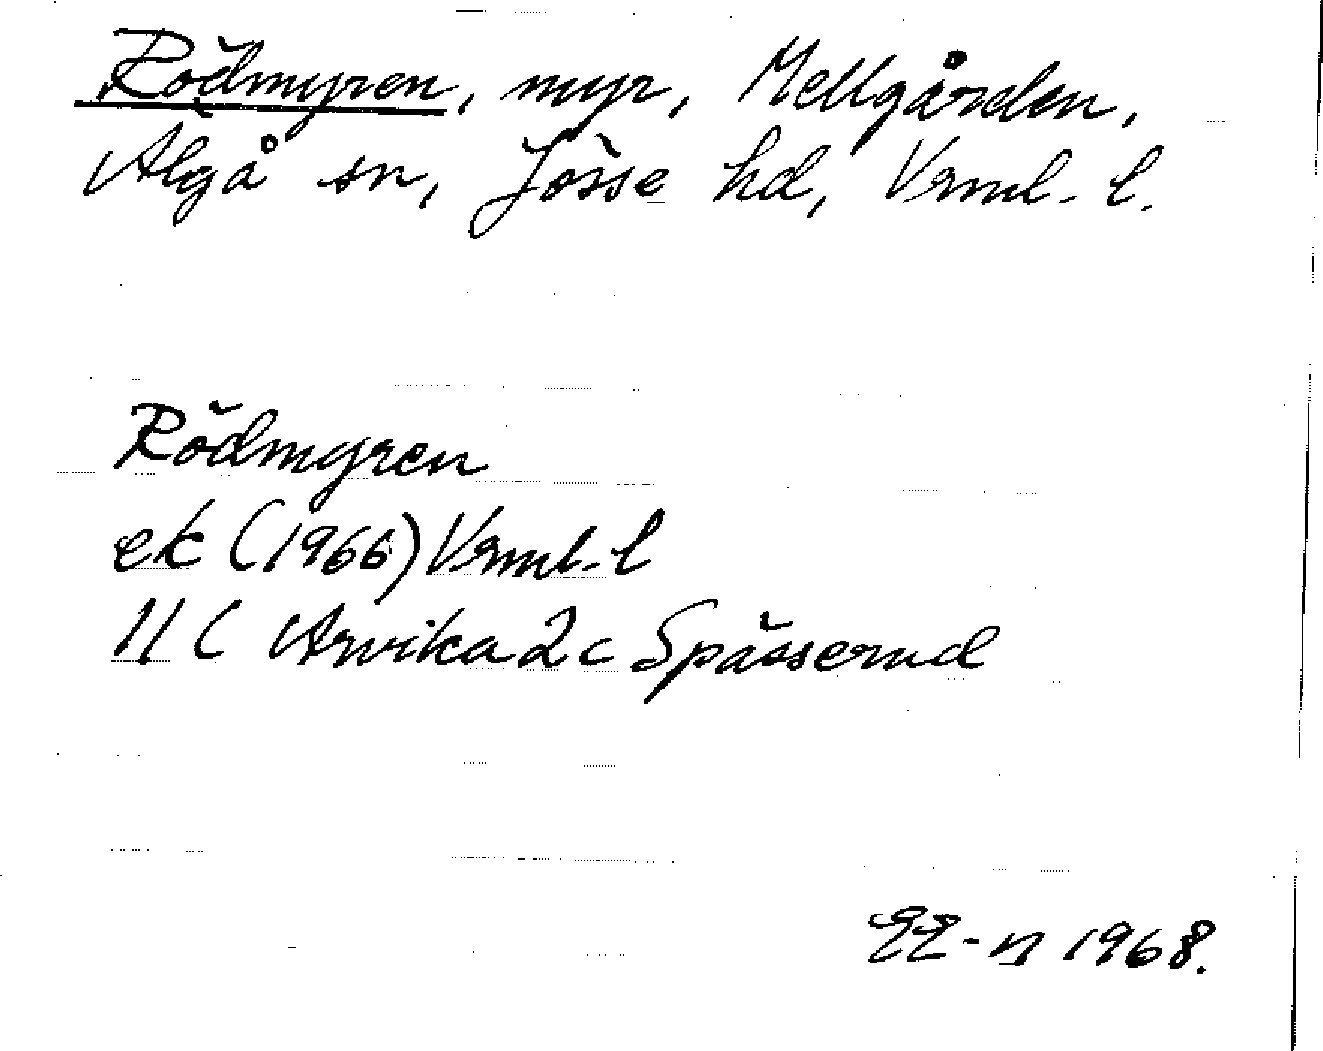 Rödmyren, myr, Mellgården,
Älgå sn, Jösse hd, Vrml. l.
Rödmyren
ek (1966) Vrml. l
11C Arvika 2c Spässerud
EE-n 1968.